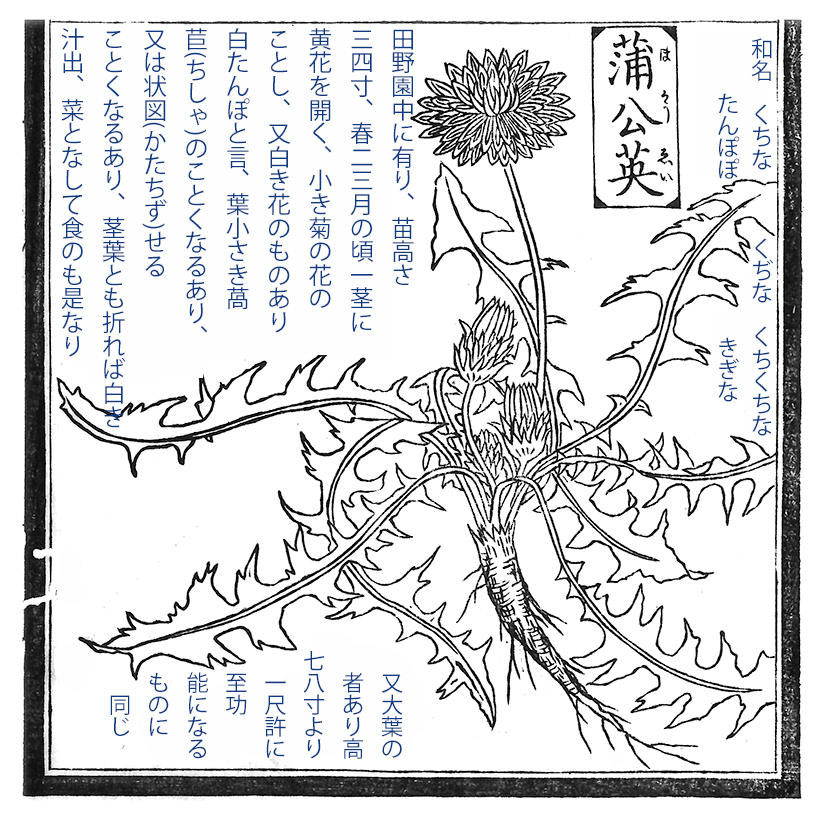 和名　くちな　くぢな　くちくちな
たんぽぽ　きぎな
蒲公英
はくうゑい
田野園中に有り、苗高さ
三四寸、春二三月の頃一茎に
黄花を開く、小き菊の花の
ことし、又白き花のものあり
白たんぽと言、葉小さき萵
苣(ちしゃ)のことくなるあり、
又は状図(かたちず)せる
ことくなるあり、茎葉とも折れば白き
汁出、菜となして食のも是なり
又大葉の
者あり高
七八寸より
一尺許に
至功
能になる
ものに
同じ